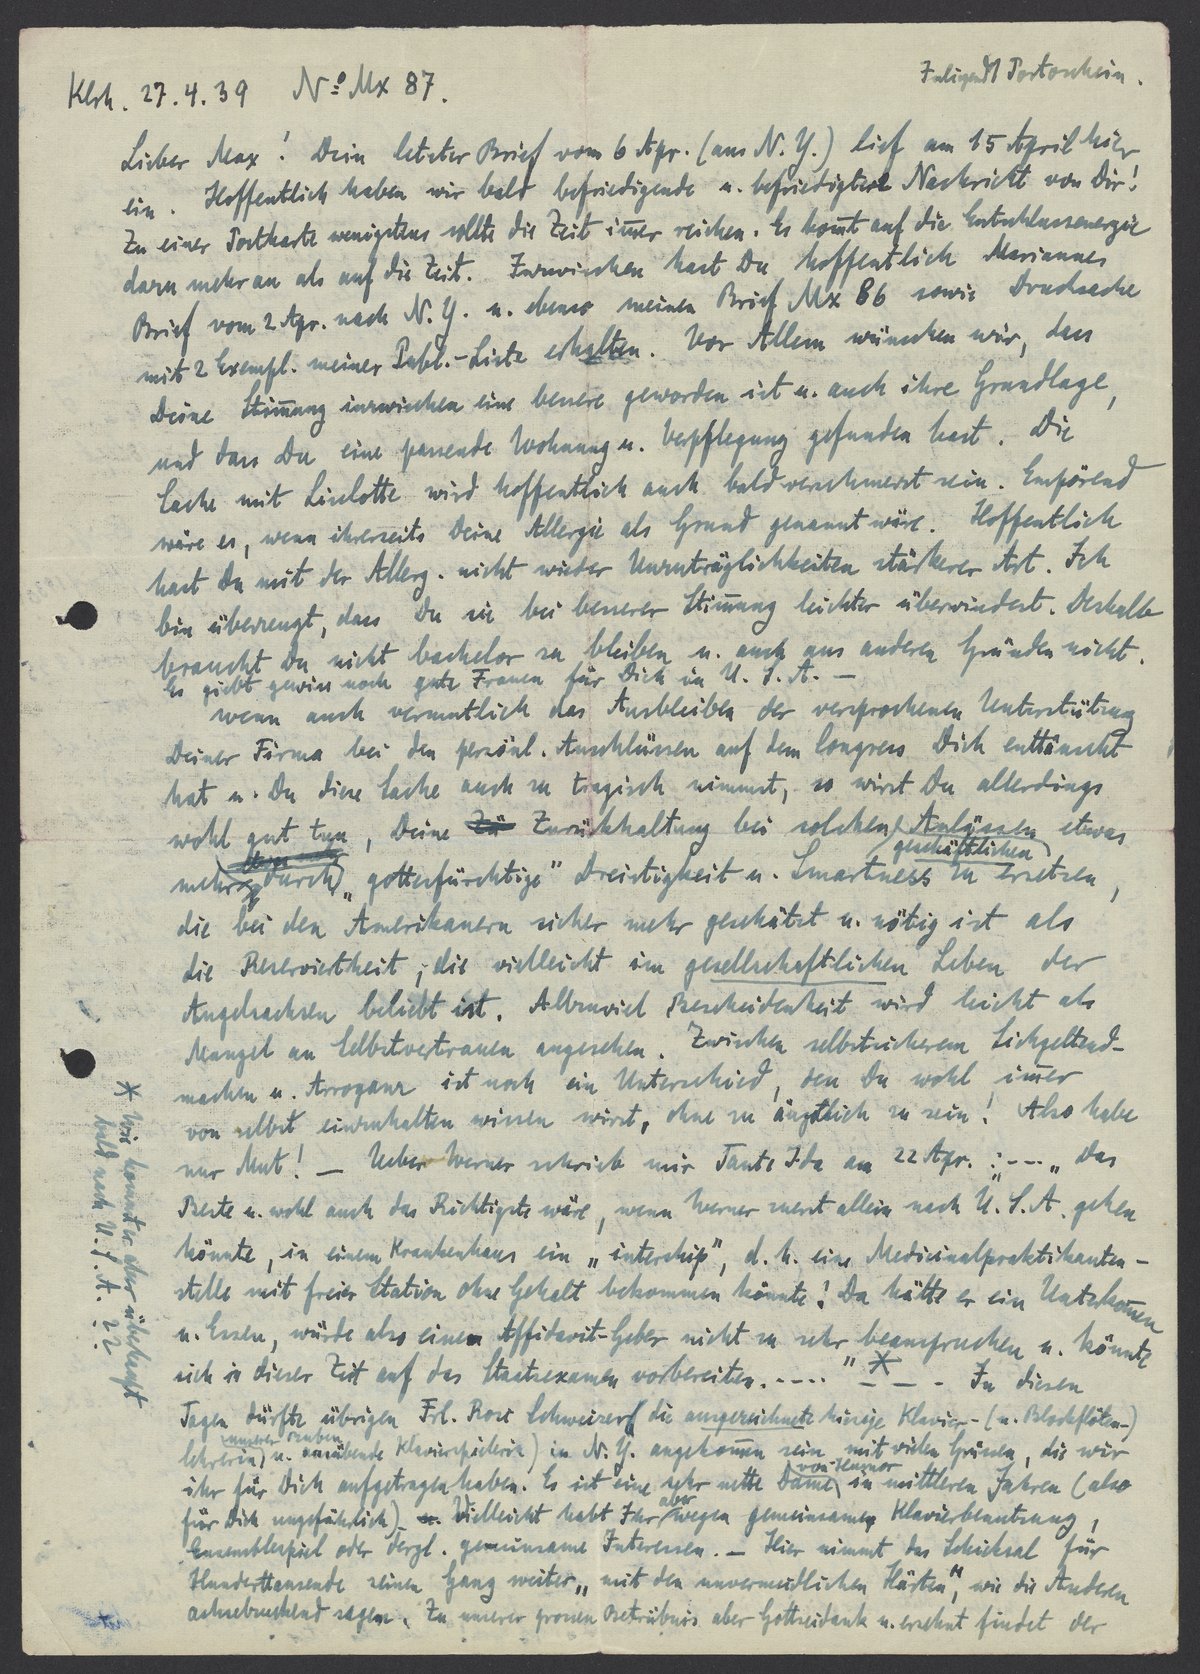 Klrh. 27.4.39 No Mx 87.
Inliegend 1 Portoschein.
Lieber Max! Dein letzter Brief vom 6 Apr. (aus N.Y.) lief am 15 April hier
ein. Hoffentlich haben wir bald befriedigende u. befriedigtere Nachricht von Dir!
Zu einer Postkarte wenigstens sollte die Zeit im̅er reichen. Es kom̅t auf die Entschlussenergie
dazu mehr an als auf die Zeit. Inzwischen hast Du hoffentlich Mariannes
Brief vom 2 Apr. nach N.Y. u. ebenso meinen Brief Mx 86 sowie Drucksache
mit 2 Exempl. meiner Publ.-Liste erhalten. Vor Allem wünschen wir, dass
Deine Stim̅ung inzwischen eine bessere geworden ist u. auch ihre Grundlage,
und dass Du eine passende Wohnung u. Verpflegung gefunden hast. Die
Sache mit Liselotte wird hoffentlich auch bald verschmerzt sein. Empörend
wäre es, wenn ihrerseits Deine Allergie als Grund genannt wäre. Hoffentlich
hast Du mit der Allerg. nicht wieder Unzuträglichkeiten stärkerer Art. Ich
bin überzeugt, dass Du sie bei besserer Stim̅ung leichter überwindest. Deshalb
brauchst Du nicht bachelor zu bleiben u. auch aus anderen Gründen nicht.
Es giebt gewiss noch gute Frauen für Dich in U.S.A. —
Wenn auch vermutlich das Ausbleiben der versprochenen Unterstützung
Deiner Firma bei den persönl. Anschlüssen auf dem Congress Dich enttäuscht
hat u. Du diese Sache auch zu tragisch nimmst, so wirst Du allerdings
wohl gut tun, Deine Zurückhaltung bei solchen Anlässen etwas
geschäftlichen
mehr durch „gottesfürchtige" Dreistigkeit u. Smartness zu ersetzen,
die bei den Amerikanern sicher mehr geschätzt u. nötig ist als
die Reserviertheit, die vielleicht im gesellschaftlichen Leben der
Angelsachsen beliebt ist. Allzuviel Bescheidenheit wird leicht als
Mangel an Selbstvertrauen angesehen. Zwischen selbstsicherem Sichgeltend-
machen u. Arroganz ist noch ein Unterschied, den Du wohl im̅er
von selbst einzuhalten wissen wirst, ohne zu ängstlich zu sein! Also habe
nur Mut! — Ueber Werner schrieb mir Tante Ida am 22 Apr. : --- „Das
Beste u. wohl auch das Richtigste wäre, wenn Werner zuerst allein nach U.S.A. gehen
könnte, in einem Krankenhaus ein „intership", d.h. eine Medicinalpraktikanten-
stelle mit freier Station ohne Gehalt bekommen könnte! Da hätte er ein Unterkom̅en
u. Essen, würde also einen Affidavit-Geber nicht zu sehr beanspruchen u. könnte
sich in dieser Zeit auf das Staatsexamen vorbereiten. ----" * — — - In diesen
Tagen dürfte übrigens Frl. Rosi Schweizer (die ausgezeichnete hiesige Klavier- (u. Blockflöten-)
unserer Buben
lehrerin) u. ausübende Klavierspielerin) in N.Y. angekom̅en sein mit vielen Grüssen, die wir
ihr für Dich aufgetragen haben. Es ist eine sehr nette Dame in mittleren Jahren (also
von Humor
für Dich ungefährlich). Vielleicht habt Ihr aber wegen gemeinsamer Klavierbenutzung,
Ensemblespiel oder dergl. gemeinsame Interessen. — Hier nimmt das Schicksal für
Hunderttausende seinen Gang weiter „mit den unvermeidlichen Härten", wie die Anderen
achselzuckend sagen. Zu unserer grossen Betrübnis aber Gottseidank u. ersehnt findet der
* Wie kommt er aber überhaupt
bald nach U.S.A.??